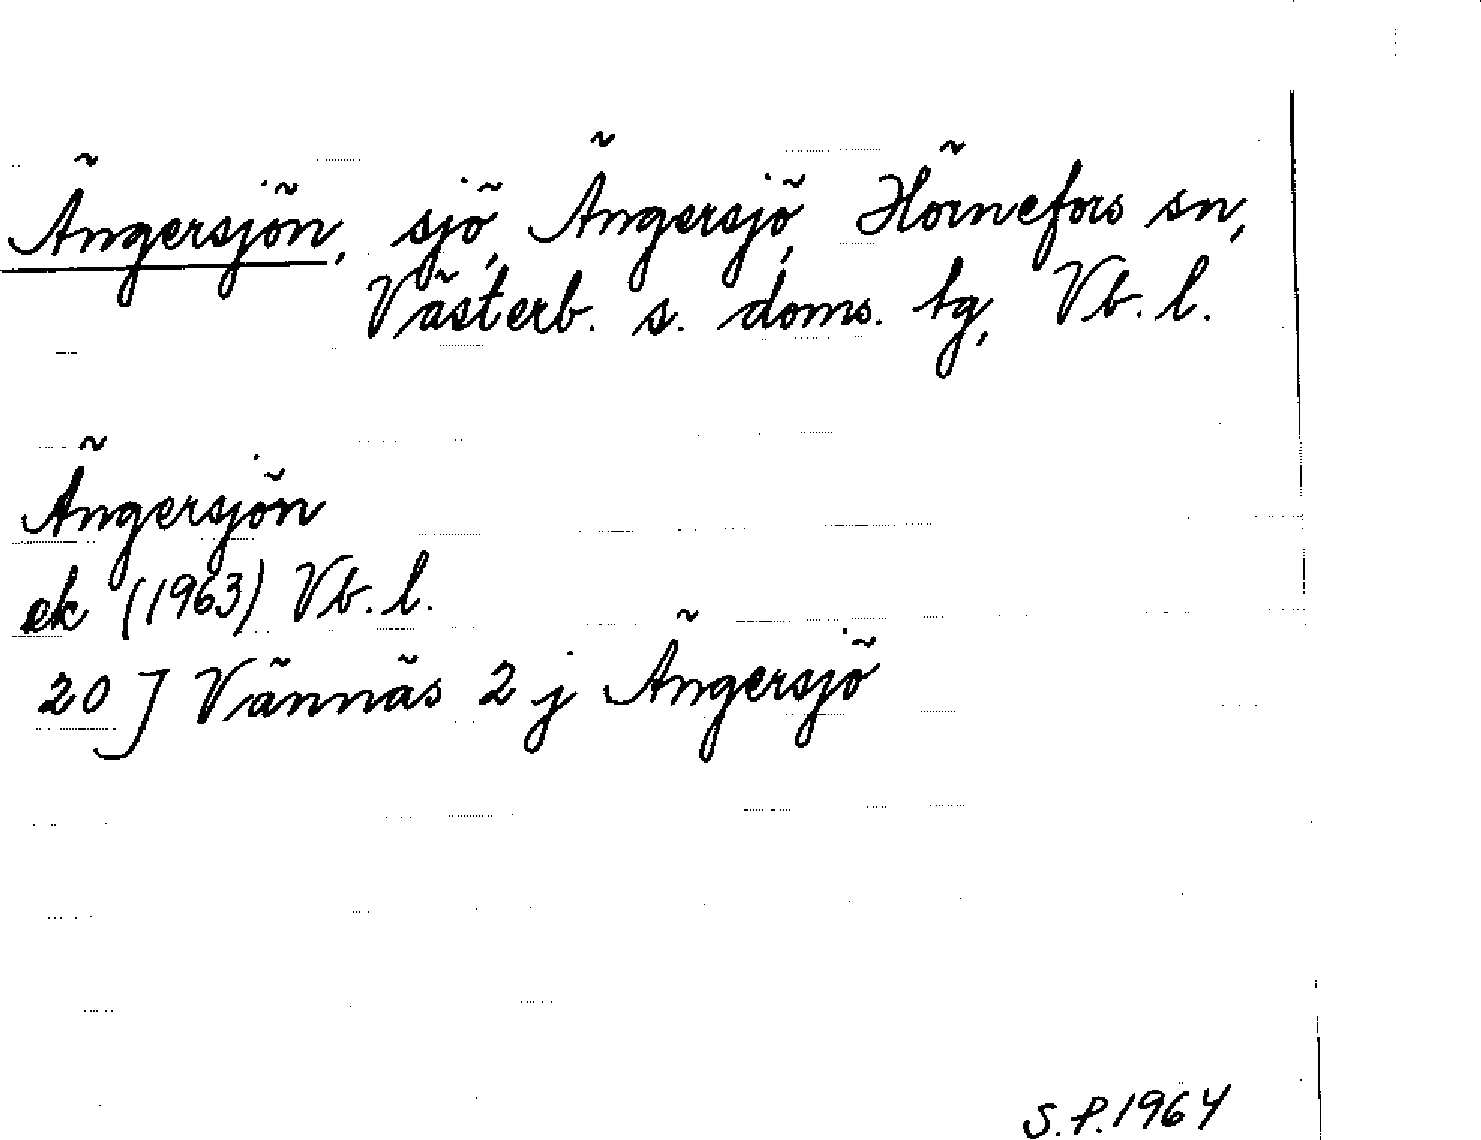 Ängersjön, sjö, Ängersjö, Hörnefors sn,
Västerb. s. doms. tg, Vb. l.
Ängersjön
ek (1963) Vb. l.
20 J Vännäs 2 j Ängersjö
S.P. 1964